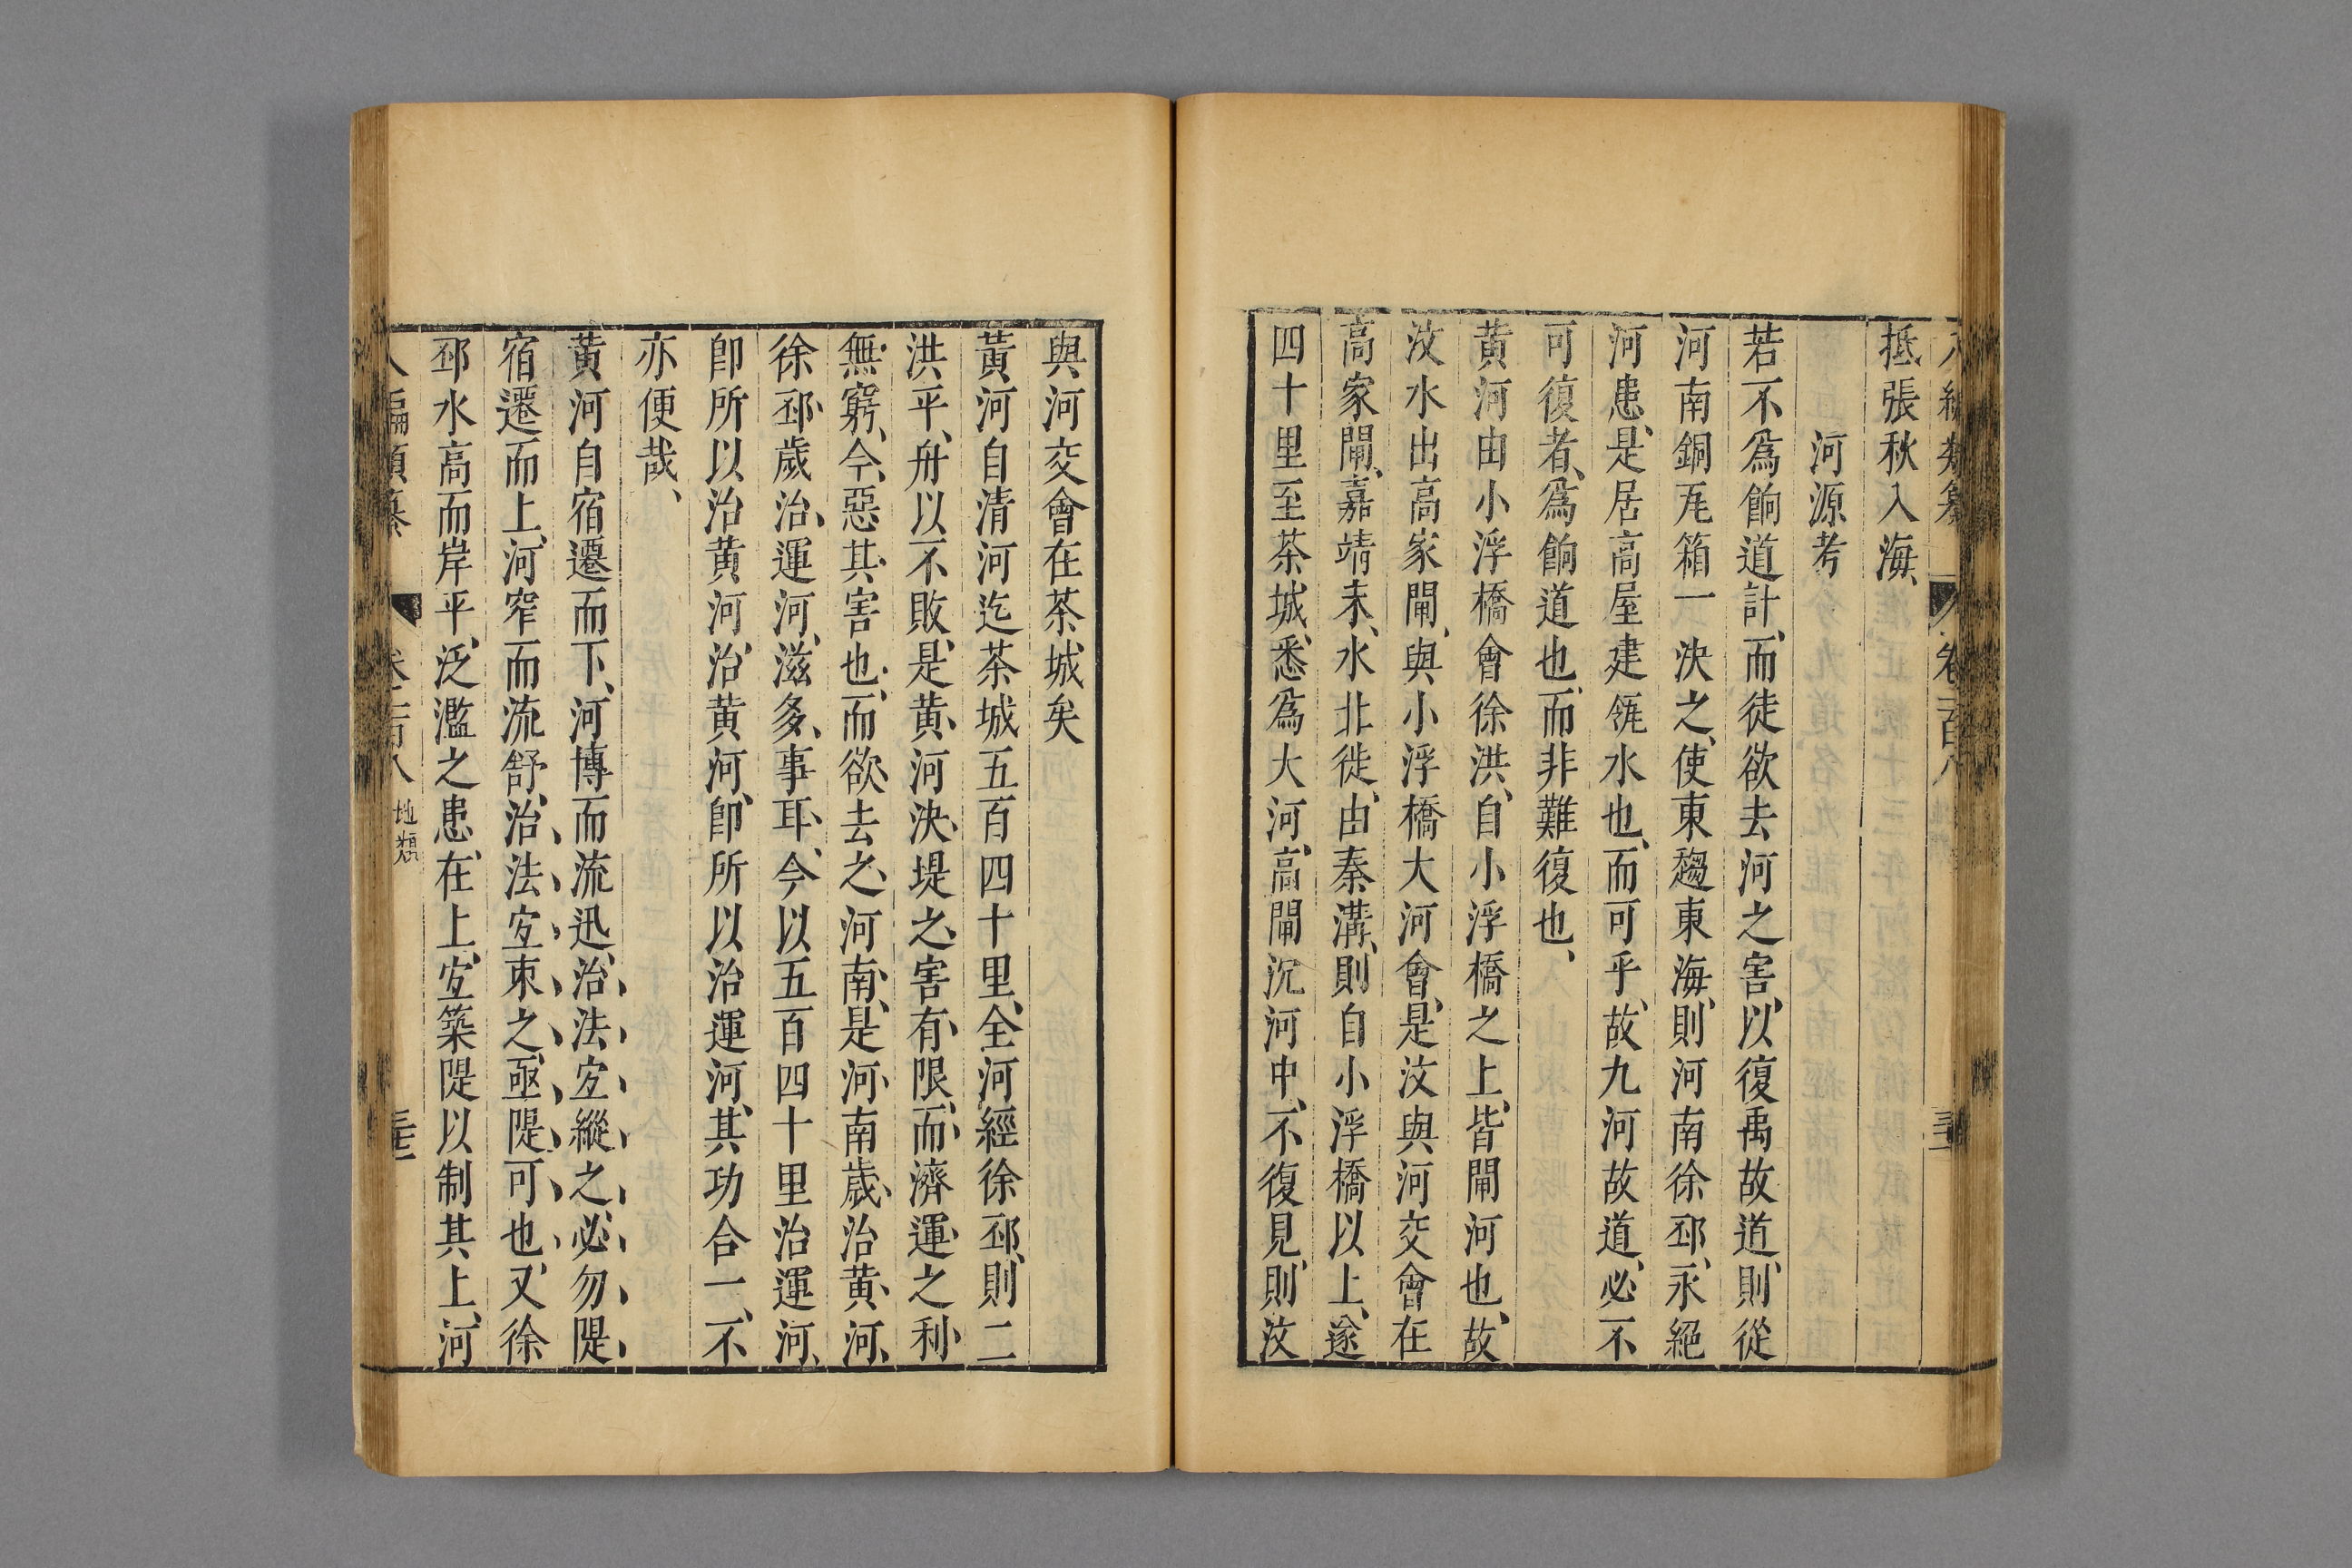 抵張秋入海、
河源考
若不爲餉道計、而徒欲去河之害、以復禹故道、則從
河南銅瓦箱一決之、使東趨東海、則河南徐邳、永絕
河患、是居高屋建瓴水也、而可乎、故九河故道、必不
可復者、爲餉道也、而非難復也、
黃河由小浮橋會徐洪、自小浮橋之上、皆閘河也、故
汶水出高家閘、與小浮橋大河會、是汶與河交會在
高家閘、嘉靖末、水北徙、由秦溝、則自小浮橋以上、遂
四十里至茶城、悉爲大河、高閘沉河中、不復見、則汶
與河交會在茶城矣
黃河自清河迄茶城五百四十里、全河經徐邳、則二
洪平、舟以不敗、是黃河決堤之害有限、而濟運之利
無窮、今惡其害也、而欲去之、河南、是河南歲治黃河、
徐邳歲治、運河、滋多事耳、今以五百四十里治運河、
即所以治黃河、治黃河、即所以治運河、其功合一、不
亦便哉、
黃河自宿遷而下、河博而流迅、治法宜縱之、必勿隄、
宿遷而上、河窄而流舒、治法宜束之、亟隄可也、又徐
邳水高而岸平、泛濫之患在上、宜築隄以制其上、河
八編類纂 卷二百八 地類